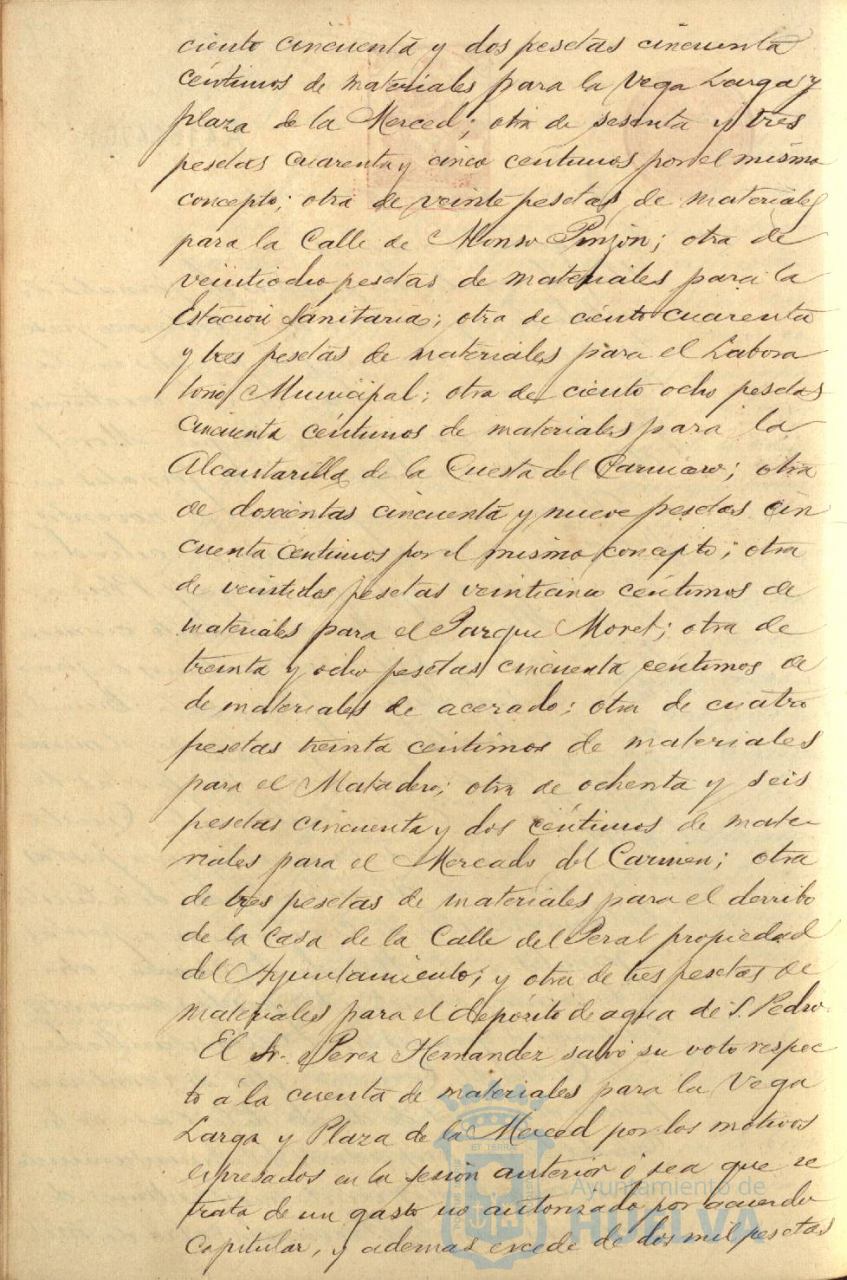 ciento cincuenta y dos pesetas cincuenta
céntimos de materiales para la Vega Larga y
plaza de la Merced; otra de sesenta y tres
pesetas cuarenta y cinco céntimos por el mismo
concepto; otra de veinte pesetas de materiales
para la Calle de Alonso Pinzón; otra de
veintiocho pesetas de materiales para la
Estación Sanitaria; otra de ciento cuarenta
y tres pesetas de materiales para el Labora
torio Municipal; otra de ciento ocho pesetas
cincuenta céntimos de materiales para la
Alcantarilla de la Cuesta del Carnicero; otra
de doscientas cincuenta y nueve pesetas cin
cuenta centimos por el mismo concepto; otra
de veintidos pesetas veinticinco céntimos de
materiales para el Parque Moret; otra de
treinta y ocho pesetas cincuenta centimos de
de materiales de acerado; otra de cuatro
pesetas treinta céntimos de materiales
para el Matadero; otra de ochenta y seis
pesetas cincuenta y dos céntimos de mate-
riales para el Mercado del Carmen; otra
de tres pesetas de materiales para el derribo
de la casa de la Calle del Peral propiedad
del Ayuntamiento; y otra de tres pesetas de
materiales para el depósito de agua de S. Pedro.
El Sr. Perez Hernandez salvó su voto respec
to á la cuenta de materiales para la Vega
Larga y Plaza de la Merced por los motivos
expresados en la sesión anterior ó sea que se
trata de un gasto no autorizado por acuerdo
Capitular, y ademas excede de dos mil pesetas
Ayuntamiento de
HUELVA